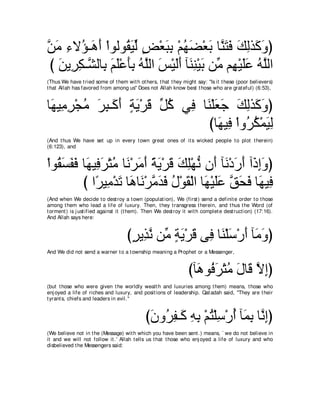 وَكَذَلِكَ فَتَنَّا بَعْضَهُمْ بِبَعْضٍ لِّيَقُولواْ أَهَـؤُلاءِ مَنَّ
اللَّهُ عَلَيْهِم مِّن بَيْنِنَآ أَلَيْسَ اللَّهُ بِأَعْلَمَ بِالشَّـكِرِينَ )
(Thus We have tried some of them with others, that they might say: "Is it these (poor believers) that Allah has favored from among us" Does not Allah know best those who are grateful) (6:53),
(وَكَذَلِكَ جَعَلْنَا فِي كُلِّ قَرْيَةٍ أَكَـبِرَ مُجْرِمِيهَا
لِيَمْكُرُواْ فِيهَا)
(And thus We have set up in every town great ones of its wicked people to plot therein) (6:123), and
(وَإِذَآ أَرَدْنَآ أَن نُّهْلِكَ قَرْيَةً أَمَرْنَا مُتْرَفِيهَا فَفَسَقُواْ
فِيهَا فَحَقَّ عَلَيْهَا الْقَوْلُ فَدَمَّرْنَاهَا تَدْمِيرًا )
(And when We decide to destroy a town (population), We (first) send a definite order to those among them who lead a life of luxury. Then, they transgress therein, and thus the Word (of torment) is justified against it (them). Then We destroy it with complete destruction) (17:16). And Allah says here:
(وَمَآ أَرْسَلْنَا فِى قَرْيَةٍ مِّن نَّذِيرٍ)
And We did not send a warner to a township meaning a Prophet or a Messenger,
(إِلاَّ قَالَ مُتْرَفُوهَآ)
(but those who were given the worldly wealth and luxuries among them) means, those who enjoyed a life of riches and luxury, and positions of leadership. Qatadah said, "They are their tyrants, chiefs and leaders in evil."
(إِنَّا بِمَآ أُرْسِلْتُمْ بِهِ كَـفِرُونَ)
(We believe not in the (Message) with which you have been sent.) means, `we do not believe in it and we will not follow it.' Allah tells us that those who enjoyed a life of luxury and who disbelieved the Messengers said: